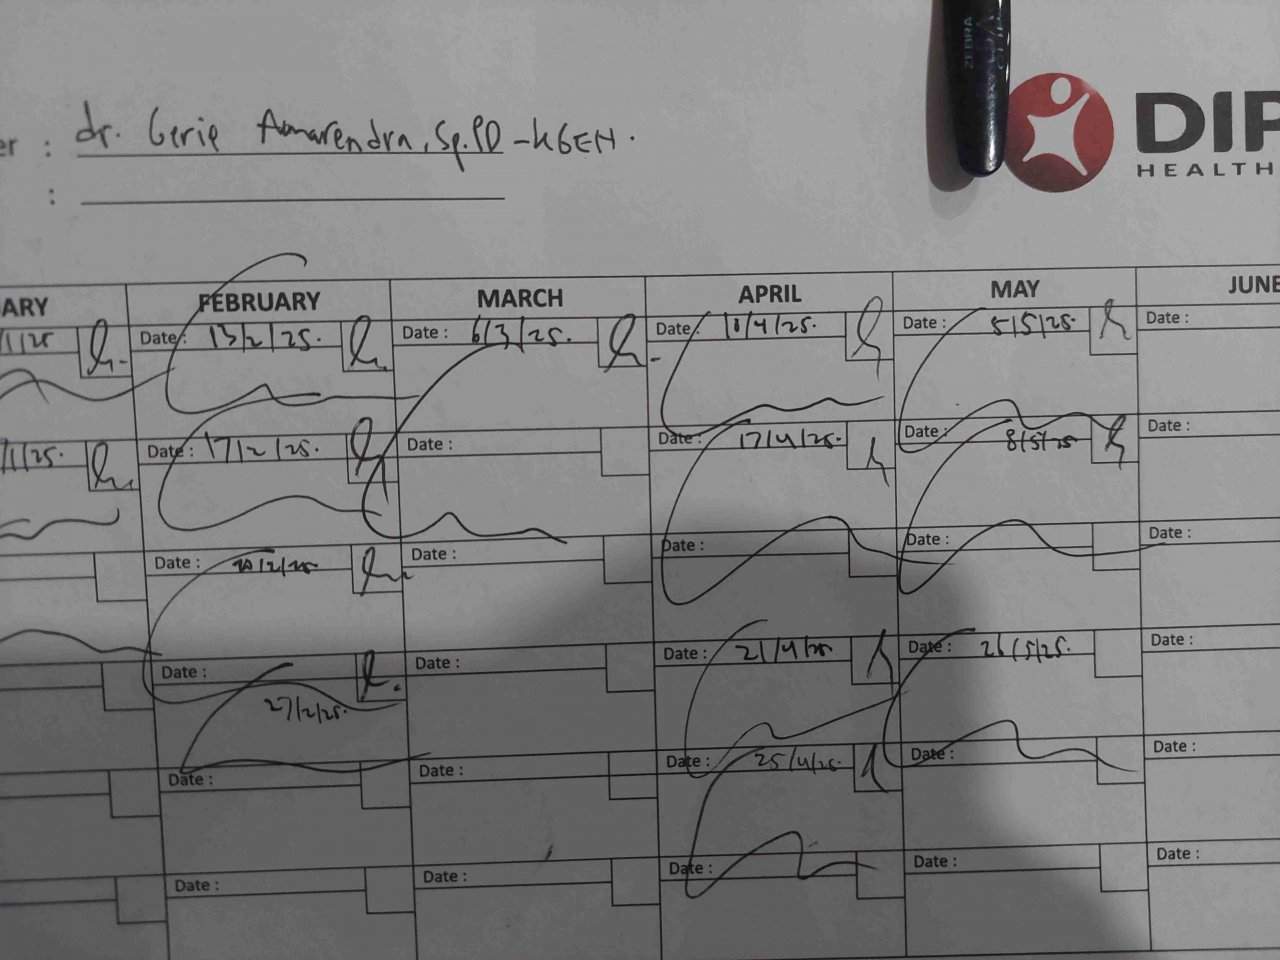 er : dr. Gerie Amarendra, Sp.PD-KGEH.
:
ZEBRA
DIP
HEALTH
ARY FEBRUARY MARCH APRIL MAY JUNE
/1/25 Date: 13/2/25. Date : 6/3/25. Date: 10/4/25. Date : 5/5/25. Date :
/1/25. Date : 17/2/25. Date : Date: 17/4/25. Date : 8/5/25 Date :
Date : 20/2/25 Date : Date : Date : Date :
Date : 27/2/25. Date : Date : 21/4/25. Date : 26/5/25. Date :
Date : Date : Date : 25/4/25. Date : Date :
Date : Date : Date : Date : Date :